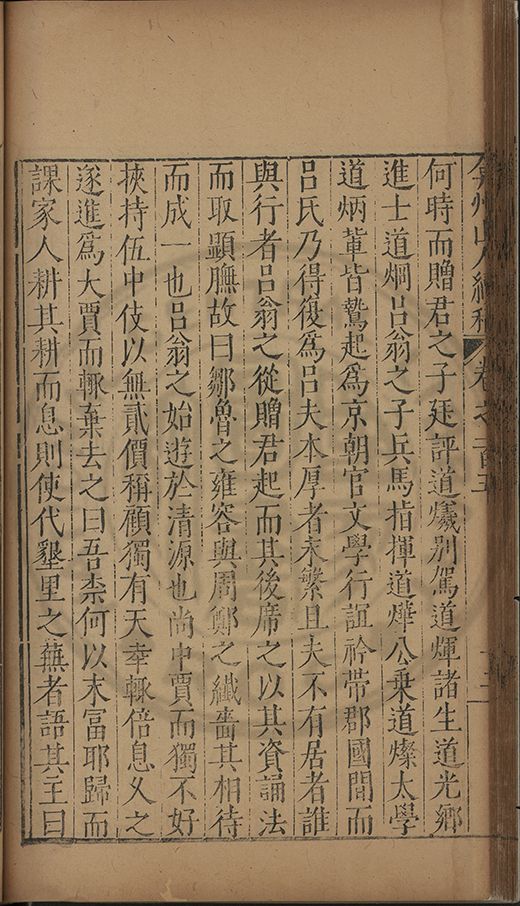 弇州山人續稿 卷之一百五
何時而贈君之子廷評道爔别駕道煇諸生道光鄉
進士道烱呂翁之子兵馬指揮道燁公乗道燦太學
道炳輩皆鵞起爲京朝官文學行誼衿帶郡國間而
呂氏乃得復爲呂夫本厚者末繁且夫不有居者誰
與行者呂翁之從贈君起而其後席之以其資誦法
而取顯膴故曰鄒魯之雍容與周鄭之纖嗇其相待
而成一也呂翁之始遊於清源也尚中賈而獨不好
挾持伍中伎以無貳價稱顧獨有天幸輙倍息乆之
遂進爲大賈而輙棄去之曰吾柰何以末富耶歸而
課家人耕其耕而息則使代墾里之蕪者語其主曰